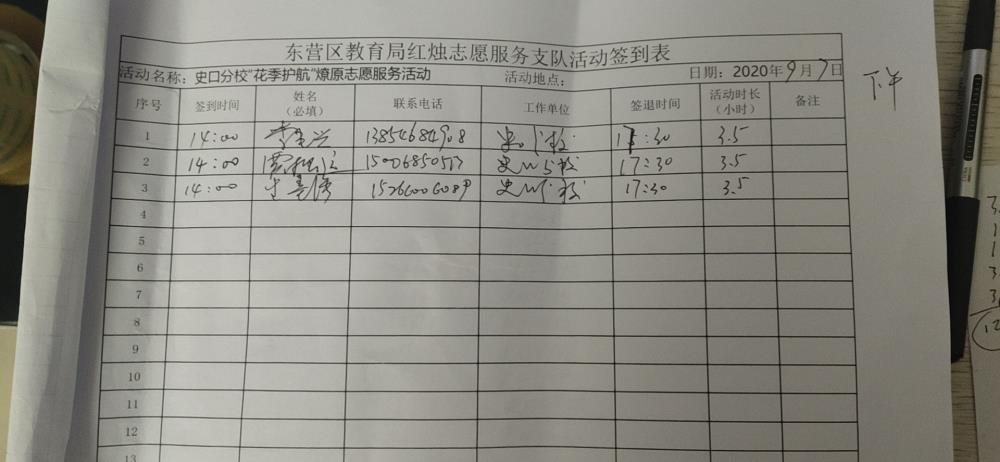 东营区教育局红烛志愿服务支队活动签到表
活动名称：史口分校“花季护航”燎原志愿服务活动 活动地点： 日期：2020年9月7日
下午
序号 签到时间 姓名（必填） 联系电话 工作单位 签退时间 活动时长（小时） 备注
1 14:00 13854684908 史口分校 17:30 3.5
2 14:00 史口分校 17:30 3.5
3 14:00 史口分校 17:30 3.5
4
5
6
7
8
9
10
11
12
13